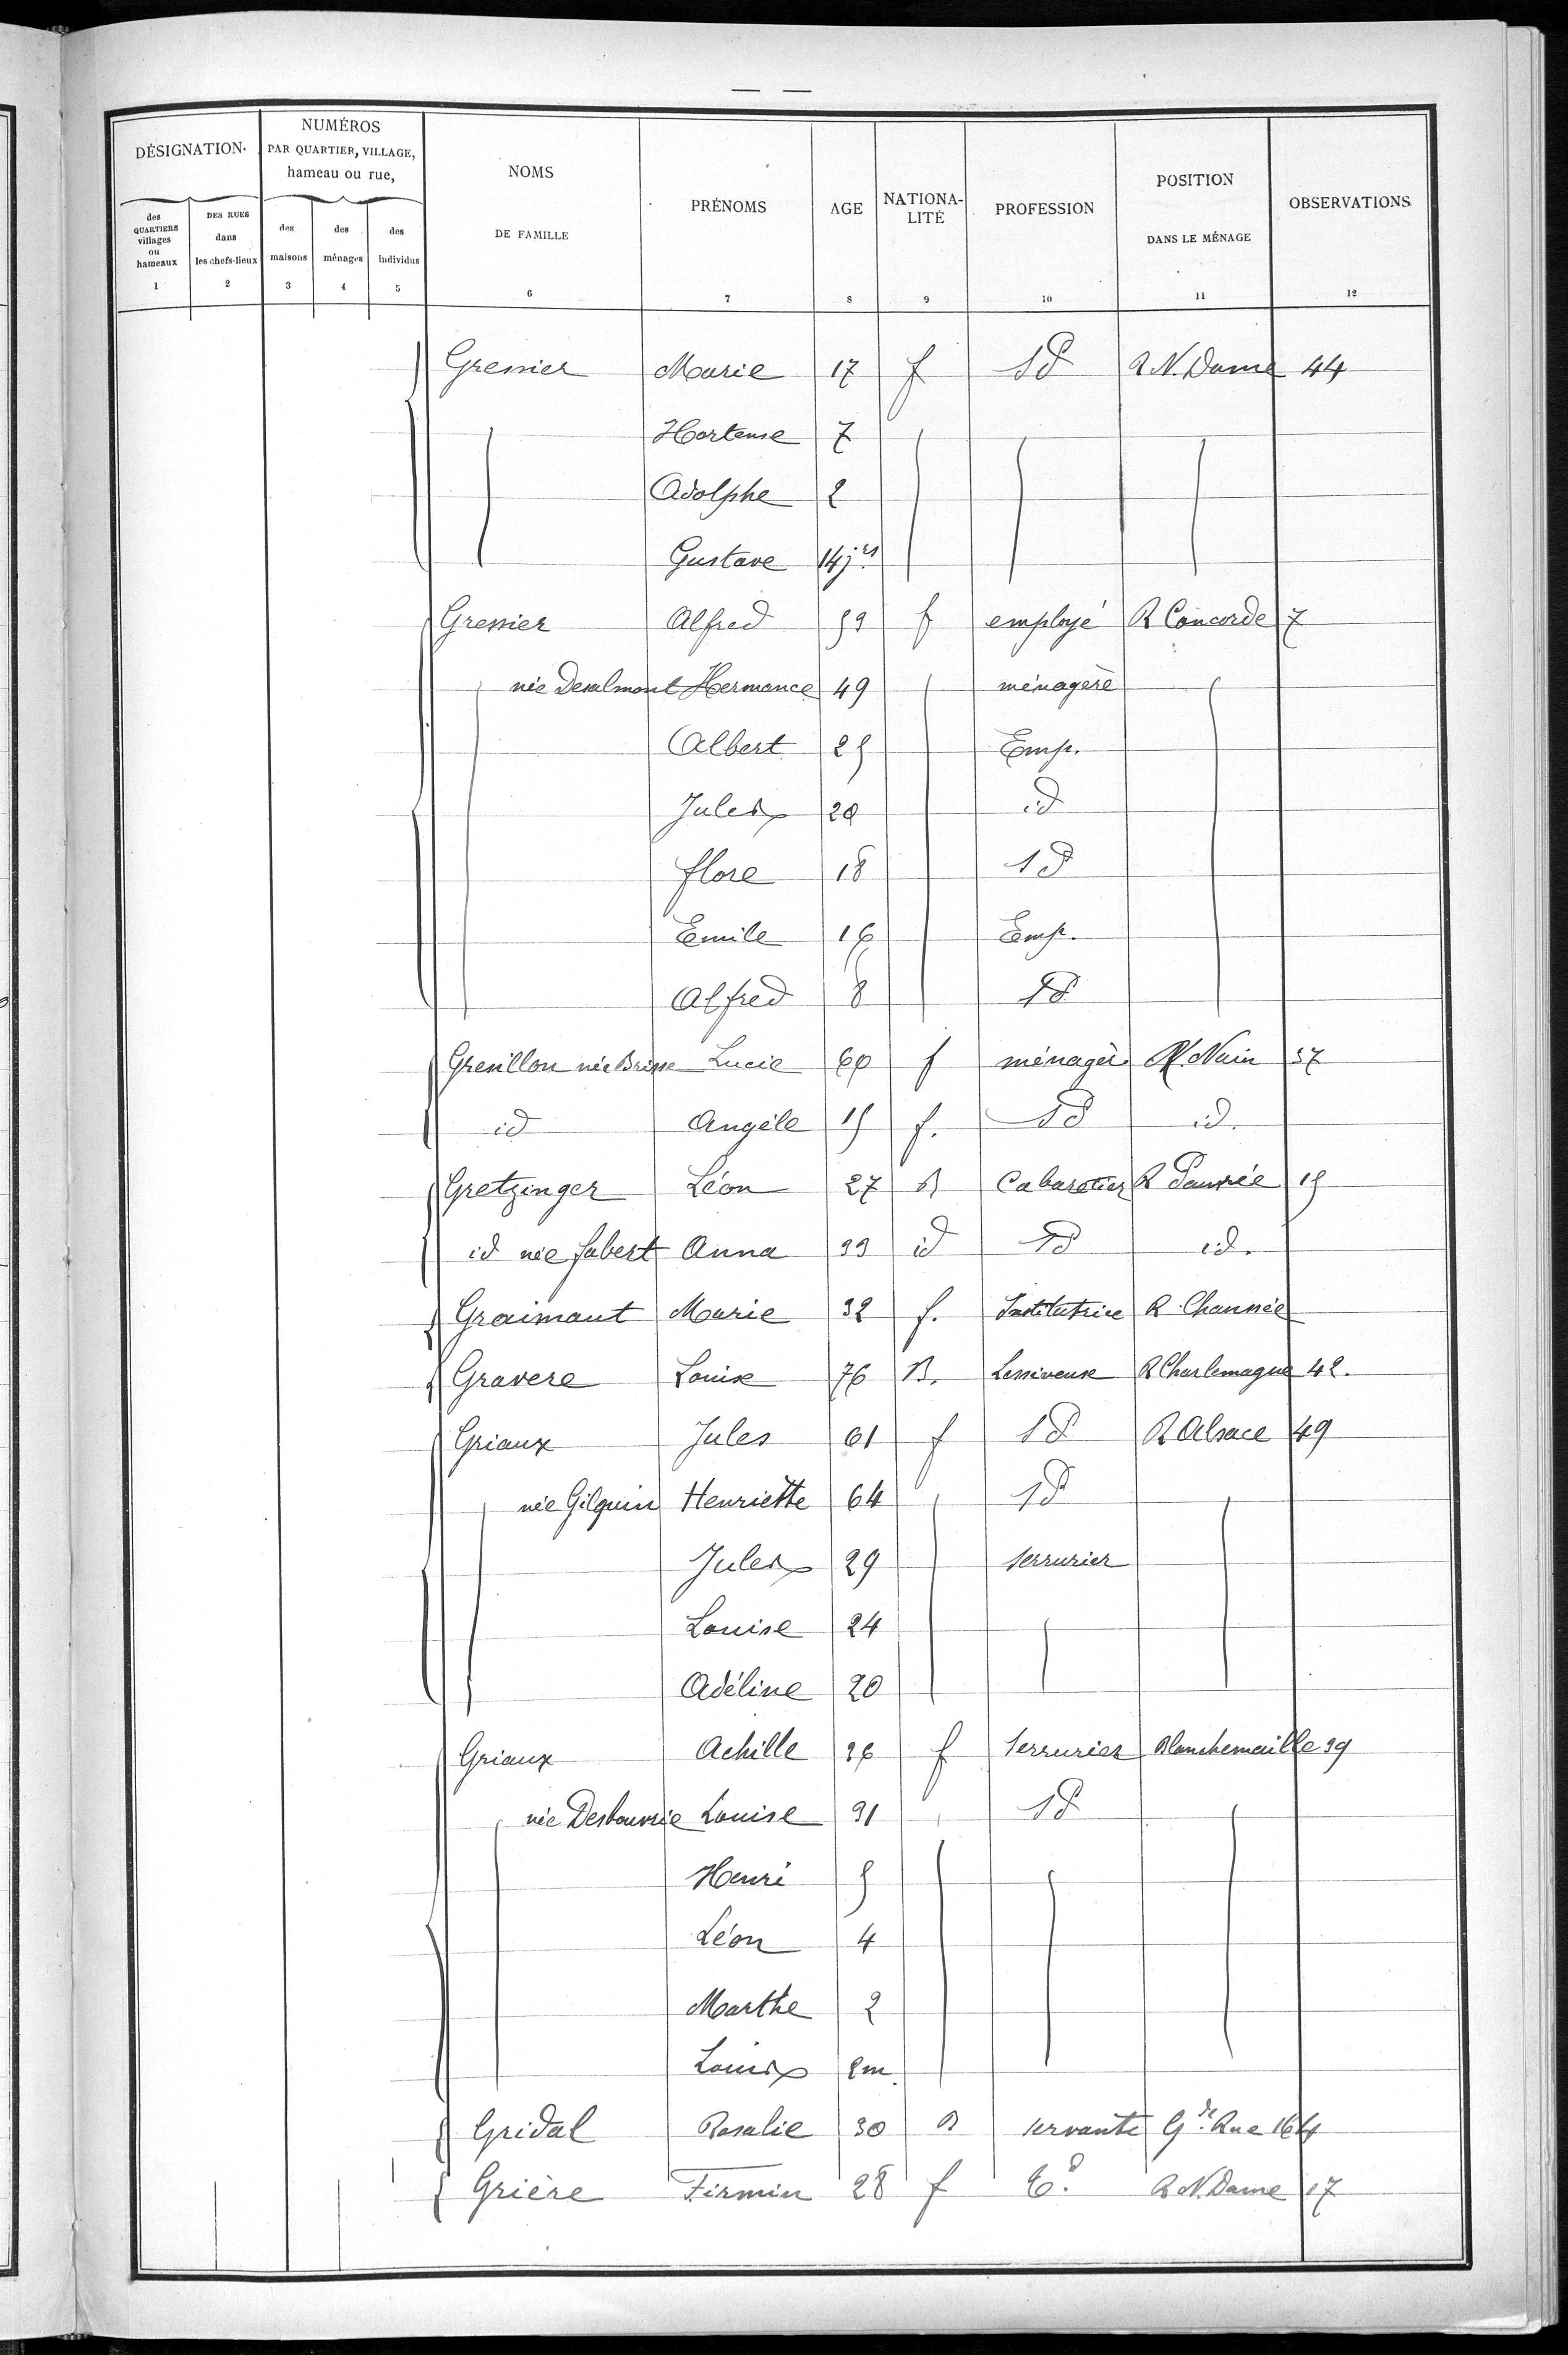 DÉSIGNATION.
NUMÉROS
PAR QUARTIER, VILLAGE,
hameau ou rue,
NOMS
DE FAMILLE
PRÉNOMS
AGE
NATIONA-
LITÉ
PROFESSION
POSITION
DANS LE MÉNAGE
OBSERVATIONS
des
QUARTIERS
villages
ou
hameaux
DES RUES
dans
les chefs-lieux
des
maisons
des
ménages
des
individus
1 2 3 4 5 6 7 8 9 10 11 12
Gressier Marie 17 f sP R N. Dame 44
Hortense 7
Adolphe 2
Gustave 14 jrs
Gressier Alfred 59 f employé R Concorde 7
née Hermance 49 ménagère
Albert 25 Emp.
Jules 20 id
flore 18 sP
Emile 16 Emp.
Alfred 8 sP
Gresillon née Brisse Lucie 60 f ménagèr R. Nain 57
id Angèle 15 f. sP id.
Gretzinger Léon 27 B Cabaretier R Pauvrée 15
id née Jabert Anna 33 id sP id.
Graimaut Marie 32 f. Institutrice R Chaussée
Gravere Louise 76 B. Lessiveuse R Charlemagne 42.
Griaux Jules 61 f sP R Alsace 49
née Gilquin Henriette 64 sP
Jules 29 serrurier
Louise 24
Adéline 20
Griaux Achille 36 f serrurier Blanchemaille 39
née Desbouvrie Louise 31 sP
Henri 5
Léon 4
Marthe 2
Louis 2 m.
Gridal Rosalie 30 B servante Gde Rue 164
Grière Firmin 28 f E.d R N. Dame 17